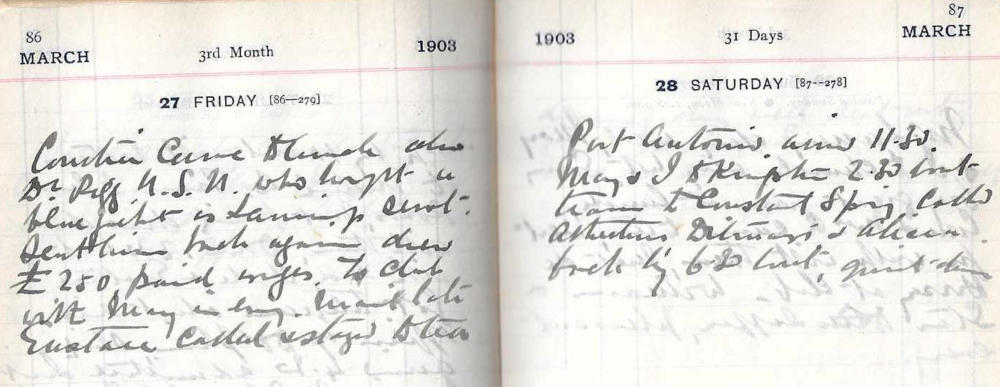 86
MARCH
3rd Month
1903
27 FRIDAY [86—279]
came to lunch also
Dr. Pigg U.S.N. who brought a
blue
sent him back again drew
£250 paid wages. To club
with May in evg. Mail late
Eustace called & stayed to tea
1903
31 Days
87
MARCH
28 SATURDAY [87--278]
Port Antonio arrive 11-30.
May & I to Kingston 2.30 boat
tram to Constant Spring Called
& Alicia
back by 6-30 boat, quiet